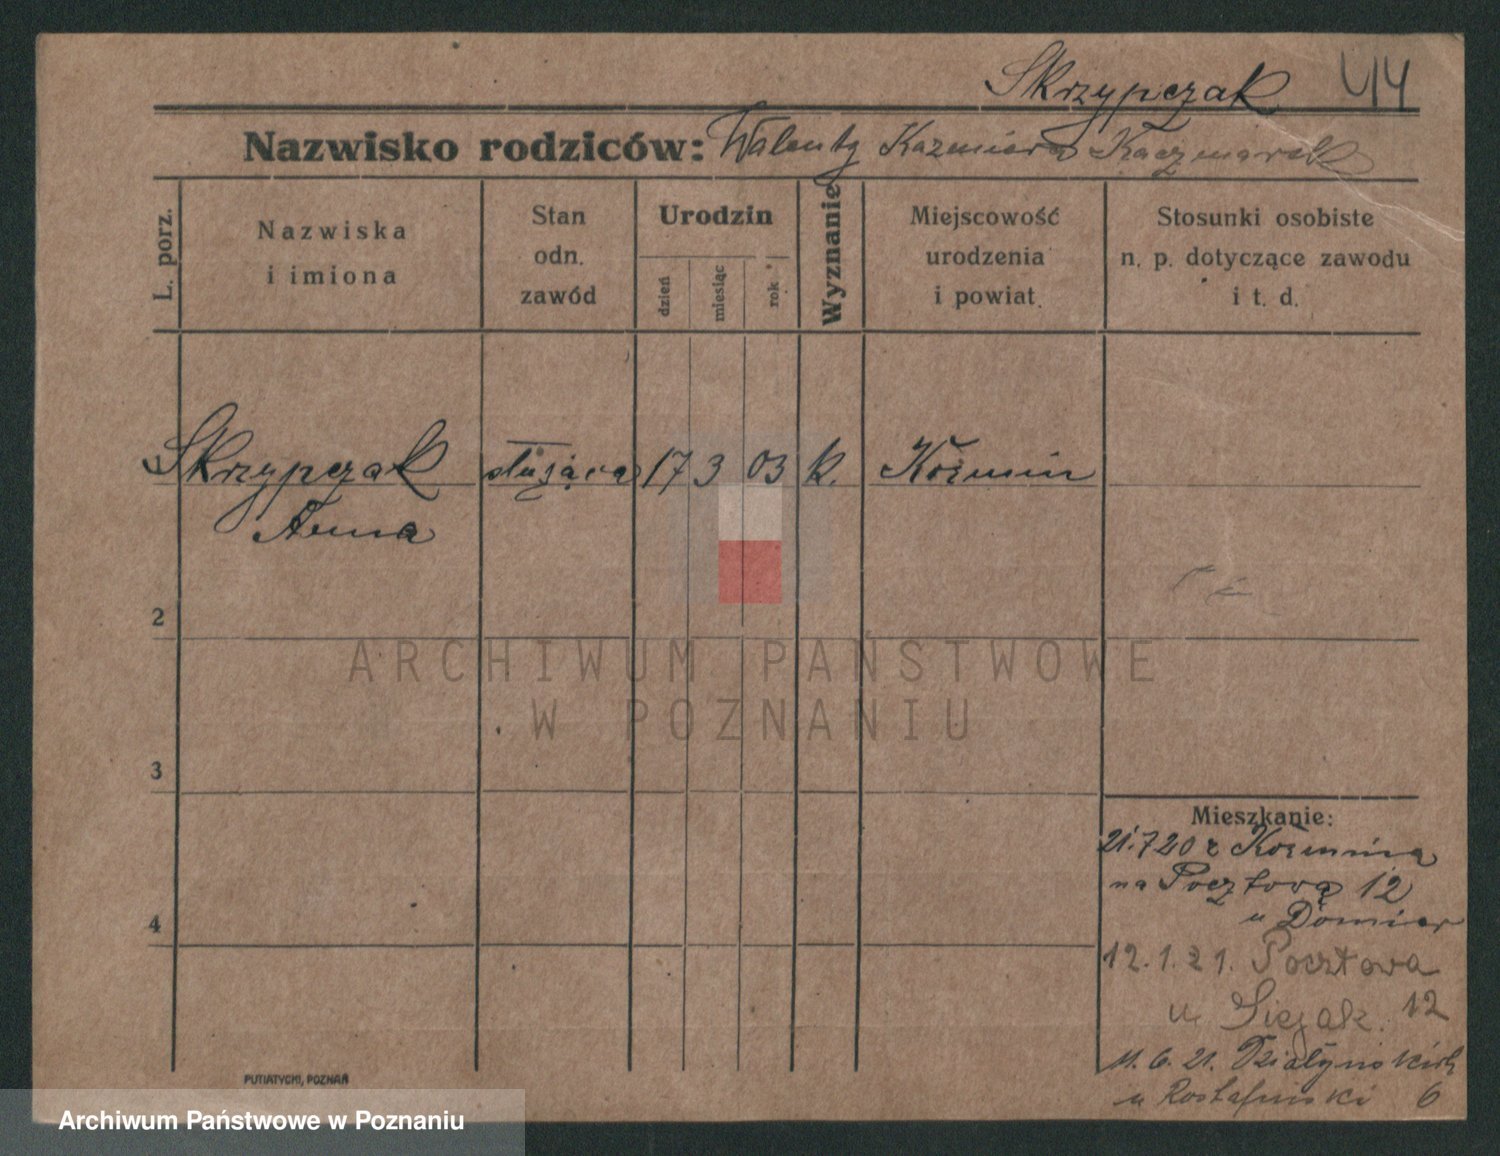 Skrzypczak 44
Nazwisko rodziców: Walenty Kazmiera Kaczmarek
L. porz.
Nazwiska
i imiona
Stan
odn.
zawód
Urodzin
dzień
miesiąc
rok
Wyznanie
Miejscowość
urodzenia
i powiat
Stosunki osobiste
n. p. dotyczące zawodu
i t. d.
Skrzypczak służąca 17 3 03 k. Koźmin
Anna
2
ARCHIWUM PAŃSTWOWE
W POZNANIU
3
Mieszkanie:
21.7 20 z Koźmina
na Pocztową 12
4
u
12.1.21. Pocztowa
u 12
11.6.21. Działyńskich
u Rostafiński 6
PUTIATYCKI, POZNAŃ
Archiwum Państwowe w Poznaniu